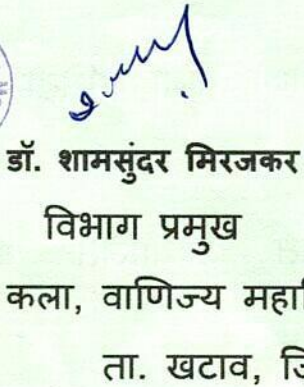 डॉ. शामसुंदर मिरजकर
विभाग प्रमुख
कला, वाणिज्य
ता. खटाव,